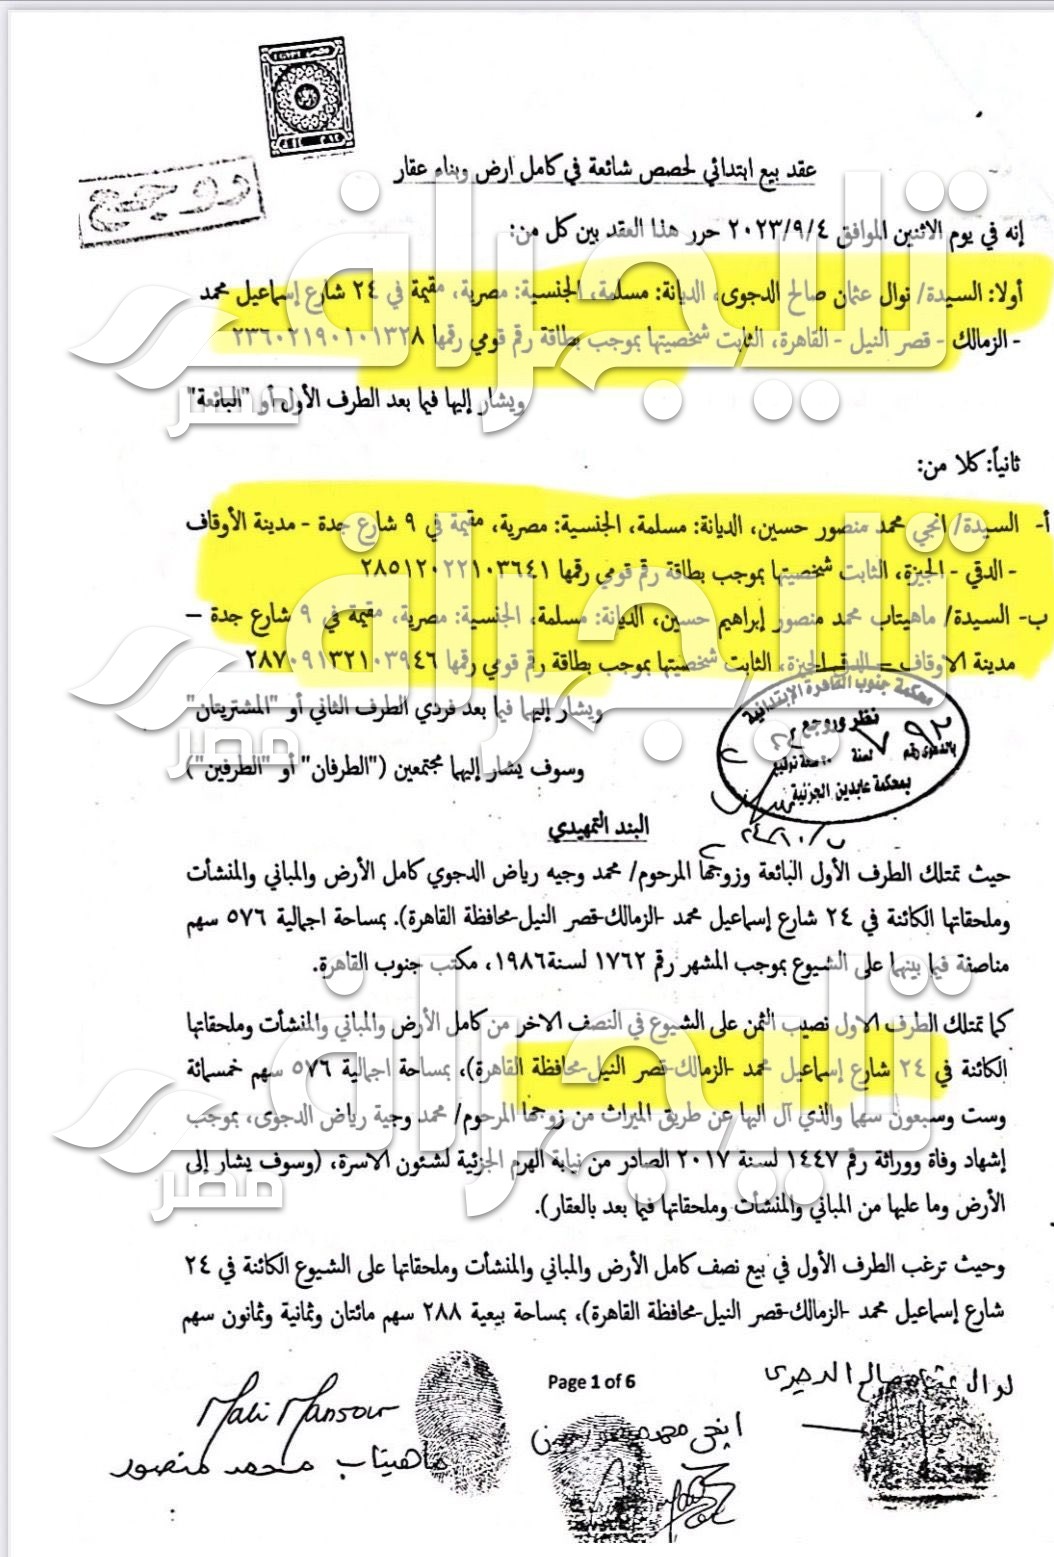 روجع
عقد بيع ابتدائي لحصص شائعة في كامل ارض وبناء عقار
إنه في يوم الاثنين الموافق ٢٠٢٣/٩/٤ حرر هذا العقد بين كل من:
أولا: السيدة/ نوال عثمان صالح الدجوى، الديانة: مسلمة، الجنسية: مصرية، مقيمة في ٢٤ شارع إسماعيل محمد
- الزمالك - قصر النيل - القاهرة، الثابت شخصيتها بموجب بطاقة رقم قومي رقمها ٢٣٦٠٢١٩٠١٠١٣٢٨
ويشار إليها فيما بعد الطرف الأول أو "البائعة"
ثانياً: كلا من:
أ- السيدة/ انجي محمد منصور حسين، الديانة: مسلمة، الجنسية: مصرية، مقيمة في ٩ شارع جدة - مدينة الأوقاف
- الدقي - الجيزة، الثابت شخصيتها بموجب بطاقة رقم قومي رقمها ٢٨٥١٢٠٢٢١٠٣٦٤١
ب- السيدة/ ماهيتاب محمد منصور إبراهيم حسين، الديانة: مسلمة، الجنسية: مصرية، مقيمة في ٩ شارع جدة –
مدينة الاوقاف – الدقي الجيزة، الثابت شخصيتها بموجب بطاقة رقم قومي رقمها ٢٨٧٠٩١٣٢١٠٣٩٤٦
ويشار إليها فيما بعد فردي الطرف الثاني أو "المشتريتان"
وسوف يشار إليهما مجتمعين ("الطرفان" أو "الطرفين")
محكمة جنوب القاهرة الإبتدائية
نظر وروجع
بالدعوى رقم ٧٩٢ لسنة صحة توقيع
بمحكمة عابدين الجزئية
البند التمهيدي
حيث تمتلك الطرف الأول البائعة وزوجها المرحوم/ محمد وجيه رياض الدجوي كامل الأرض والمباني والمنشأت
وملحقاتها الكائنة في ٢٤ شارع إسماعيل محمد -الزمالك-قصر النيل-محافظة القاهرة). بمساحة اجمالية ٥٧٦ سهم
مناصفة فيما بينهما على الشيوع بموجب المشهر رقم ١٧٦٢ لسنة١٩٨٦، مكتب جنوب القاهرة.
كما تمتلك الطرف الاول نصيب الثمن على الشيوع في النصف الاخر من كامل الأرض والمباني والمنشأت وملحقاتها
الكائنة في ٢٤ شارع إسماعيل محمد -الزمالك-قصر النيل-محافظة القاهرة)، بمساحة اجمالية ٥٧٦ سهم خمسمائة
وست وسبعون سهما والذي آل اليها عن طريق الميراث من زوجها المرحوم/ محمد وجية رياض الدجوى، بموجب
إشهاد وفاة ووراثة رقم ١٤٤٧ لسنة ٢٠١٧ الصادر من نيابة الهرم الجزئية لشئون الاسرة، (وسوف يشار إلى
الأرض وما عليها من المباني والمنشأت وملحقاتها فيما بعد بالعقار).
وحيث ترغب الطرف الأول في بيع نصف كامل الأرض والمباني والمنشأت وملحقاتها على الشيوع الكائنة في ٢٤
شارع إسماعيل محمد -الزمالك-قصر النيل-محافظة القاهرة)، بمساحة بيعية ٢٨٨ سهم مائتان وثمانية وثمانون سهم
نوال عثمان صالح الدجوى
Page 1 of 6
انجى محمد منصور حسين
Mahi Mansour
ماهيتاب محمد منصور
تليجراف مصر
تليجراف مصر
تليجراف مصر